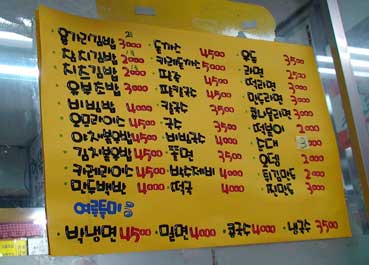 김밥 3000 · 돈까스 4500 · 우동 3500
참치김밥 2000 · 카레돈까스 5000 · 라면 2500
치즈김밥 2000 · 떡라면 3000
유부초밥 3000 · 만두라면 3000
비빔밥 4000 · 콩나물라면 3000
오므라이스 4500 · 국수 4000 · 떡볶이 2000
야채볶음밥 4500 · 비빔국수 4000 · 순대
김치볶음밥 4500 · 쫄면 4000 · 오뎅 2000
카레라이스 4500 · 수제비 4000 · 튀김만두 3000
만두백반 4000 · 떡국 4000 · 찐만두 3000
여름특미
· 빅냉면 4500 · 밀면 4000 · 콩국수 4000 · 냉국 3500